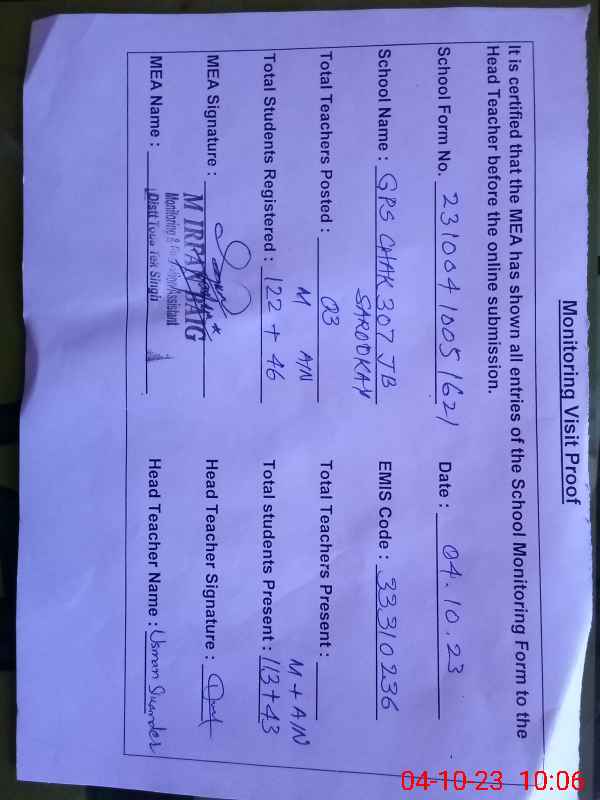 Monitoring Visit Proof
It is certified that the MEA has shown all entries of the School Monitoring Form to the
Head Teacher before the online submission.
School Form No. 2310041005 1621 Date : 04.10.23
School Name : GPS CHAK 307 JB EMIS Code : 33310236
SAROOKAY
Total Teachers Posted : 03 Total Teachers Present :
M A/N M + A/N
Total Students Registered : 122 + 46 Total students Present : 113+43
MEA Signature : Head Teacher Signature :
M IRFAN BAIG
Monitoring & Assistant
MEA Name : Distt Toba Tek Singh Head Teacher Name : Usman
04-10-23 10:06